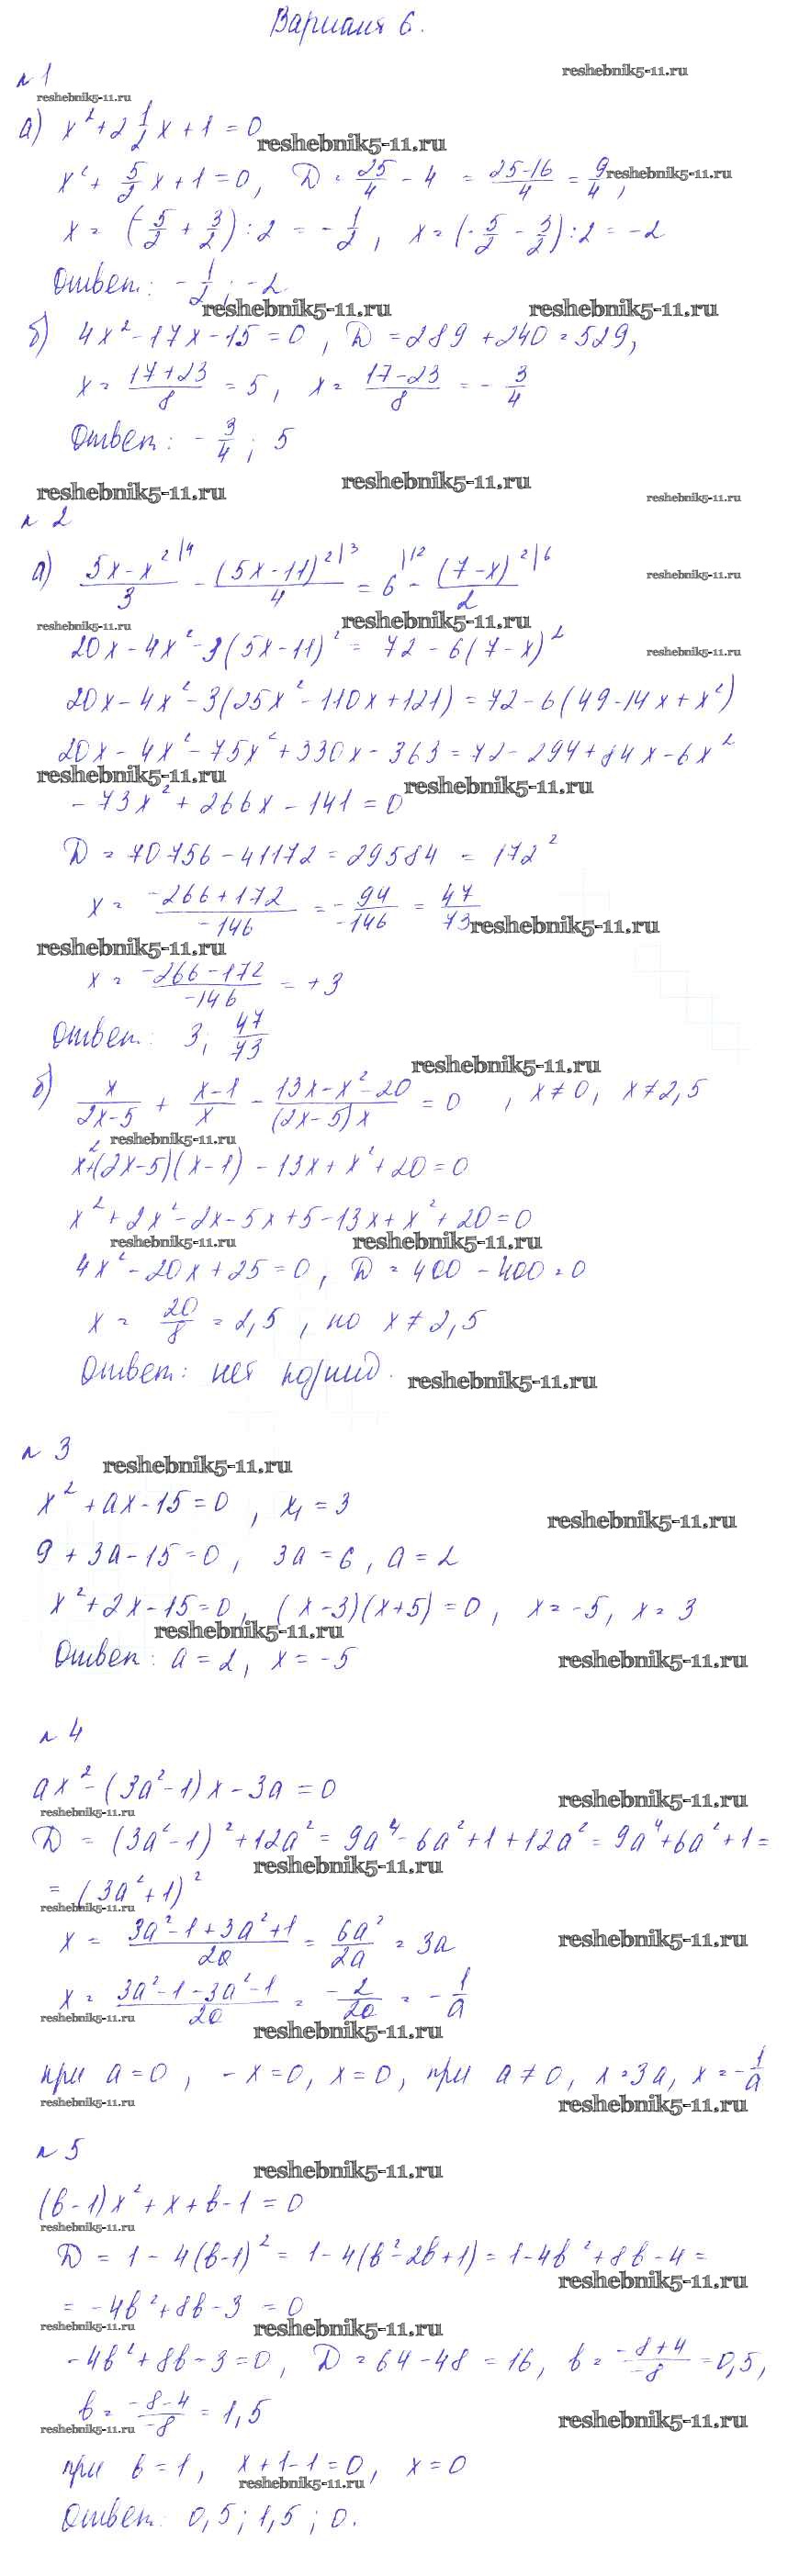 Вариант 6.
№ 1
reshebnik5-11.ru
reshebnik5-11.ru
а) x² + 2 1/2 x + 1 = 0
reshebnik5-11.ru
x² + 5/2 x + 1 = 0, D = 25/4 - 4 = (25-16)/4 = 9/4,
reshebnik5-11.ru
x = (-5/2 + 3/2) : 2 = -1/2, x = (-5/2 - 3/2) : 2 = -2
Ответ: -1/2; -2.
reshebnik5-11.ru reshebnik5-11.ru
б) 4x² - 17x - 15 = 0, D = 289 + 240 = 529,
x = (17+23)/8 = 5, x = (17-23)/8 = -3/4
Ответ: -3/4; 5
reshebnik5-11.ru reshebnik5-11.ru reshebnik5-11.ru
№ 2
а) (5x - x²)/3 |4 - (5x-11)²/4 |3 = 6 |12 - (7-x)²/2 |6
reshebnik5-11.ru
reshebnik5-11.ru reshebnik5-11.ru
20x - 4x² - 3(5x-11)² = 72 - 6(7-x)²
reshebnik5-11.ru
20x - 4x² - 3(25x² - 110x + 121) = 72 - 6(49 - 14x + x²)
20x - 4x² - 75x² + 330x - 363 = 72 - 294 + 84x - 6x²
reshebnik5-11.ru reshebnik5-11.ru
-73x² + 266x - 141 = 0
D = 70756 - 41172 = 29584 = 172²
x = (-266+172)/-146 = -94/-146 = 47/73
reshebnik5-11.ru
reshebnik5-11.ru
x = (-266-172)/-146 = +3
Ответ: 3; 47/73
reshebnik5-11.ru
б) x/(2x-5) + (x-1)/x - (13x - x² - 20)/((2x-5)x) = 0, x ≠ 0, x ≠ 2,5
reshebnik5-11.ru
x² + (2x-5)(x-1) - 13x + x² + 20 = 0
x² + 2x² - 2x - 5x + 5 - 13x + x² + 20 = 0
reshebnik5-11.ru reshebnik5-11.ru
4x² - 20x + 25 = 0, D = 400 - 400 = 0
x = 20/8 = 2,5, но x ≠ 2,5
Ответ: нет корней.
reshebnik5-11.ru
№ 3
reshebnik5-11.ru
x² + ax - 15 = 0, x₁ = 3
reshebnik5-11.ru
9 + 3a - 15 = 0, 3a = 6, a = 2
x² + 2x - 15 = 0, (x-3)(x+5) = 0, x = -5, x = 3
reshebnik5-11.ru
Ответ: a = 2, x = -5
reshebnik5-11.ru
№ 4
ax² - (3a²-1)x - 3a = 0
reshebnik5-11.ru
reshebnik5-11.ru
D = (3a²-1)² + 12a² = 9a⁴ - 6a² + 1 + 12a² = 9a⁴ + 6a² + 1 =
reshebnik5-11.ru
= (3a²+1)²
reshebnik5-11.ru
x = (3a²-1+3a²+1)/2a = 6a²/2a = 3a
reshebnik5-11.ru
x = (3a²-1-3a²-1)/2a = -2/2a = -1/a
reshebnik5-11.ru
reshebnik5-11.ru
при a = 0, -x = 0, x = 0, при a ≠ 0, x = 3a, x = -1/a
reshebnik5-11.ru reshebnik5-11.ru
№ 5
reshebnik5-11.ru
(b-1)x² + x + b - 1 = 0
reshebnik5-11.ru
D = 1 - 4(b-1)² = 1 - 4(b² - 2b + 1) = 1 - 4b² + 8b - 4 =
reshebnik5-11.ru
= -4b² + 8b - 3 = 0
reshebnik5-11.ru reshebnik5-11.ru
-4b² + 8b - 3 = 0, D = 64 - 48 = 16, b = (-8+4)/-8 = 0,5,
b = (-8-4)/-8 = 1,5
reshebnik5-11.ru reshebnik5-11.ru
при b = 1, x + 1 - 1 = 0, x = 0
reshebnik5-11.ru
Ответ: 0,5; 1,5; 0.